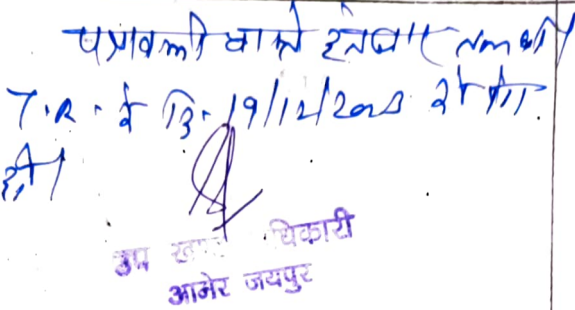 पत्रावली वास्ते इन्तजार तलबी
T.R. के दि. 19/12/2023 को पेश
हो।
उप खण्ड अधिकारी
आमेर जयपुर